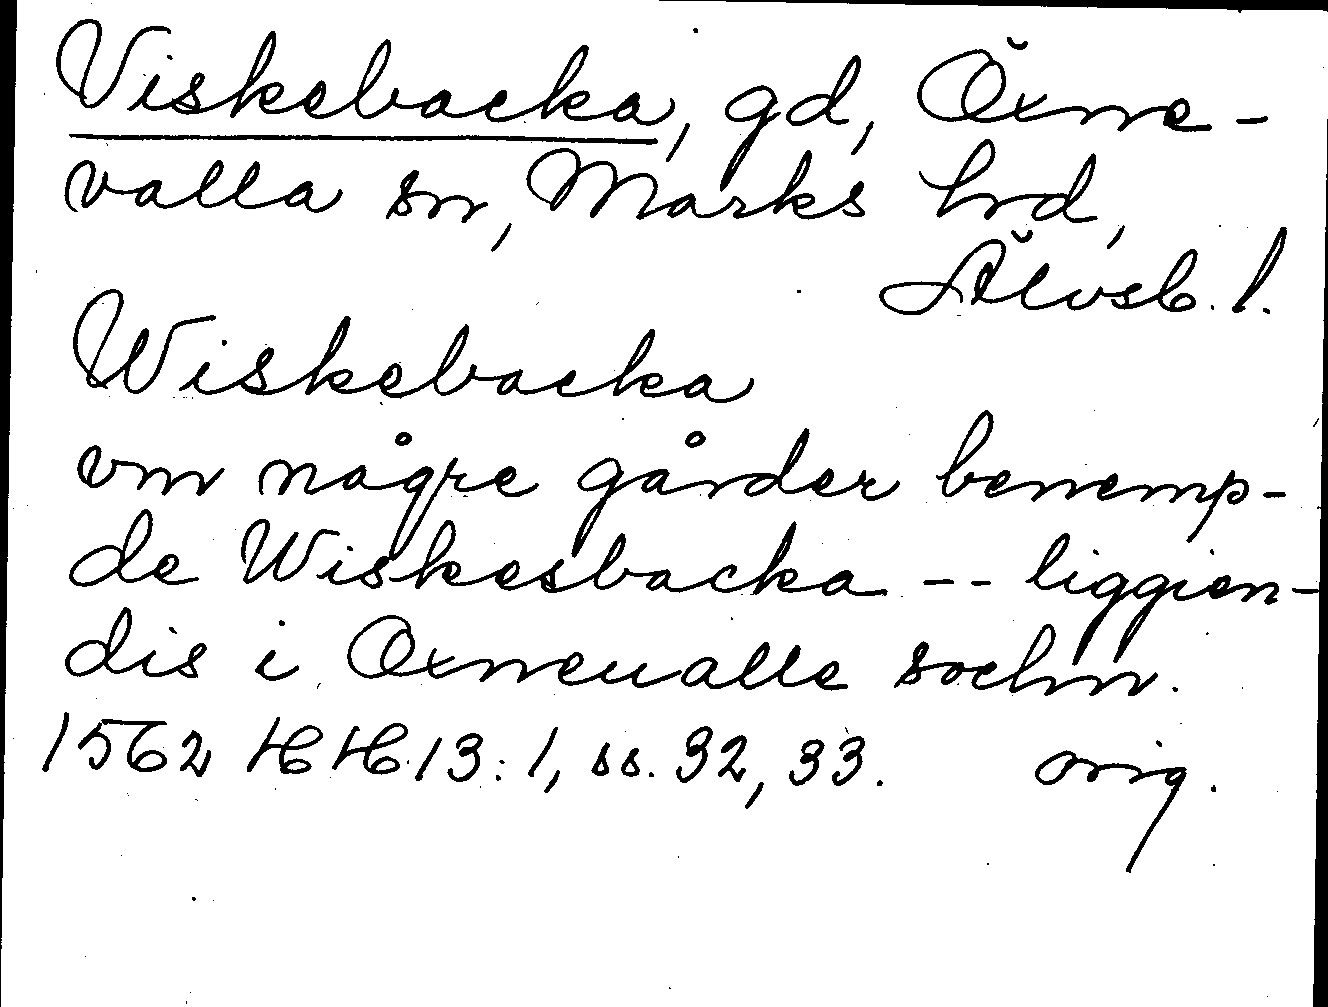 Viskebacka, gd, Öxne-
valla sn, Marks hrd,
Älvsb. l.
Wiskebacka
vm någre gårder benemp-
de Wiskesbacka -- liggien-
dis i Oxneualle sochn.
1562 HH 13:1, ss. 32, 33. orig.